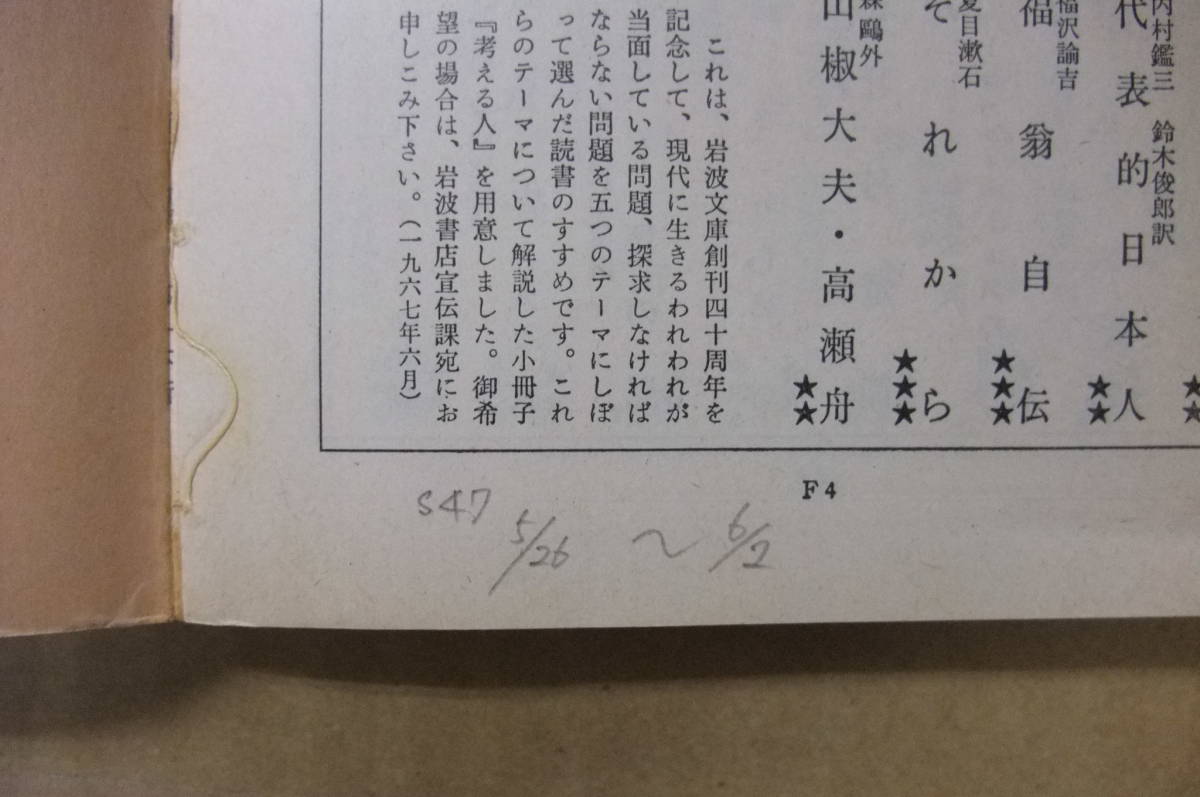 内村鑑三 鈴木俊郎訳
代表的日本人 ★★
福沢諭吉
福翁自伝 ★★★
夏目漱石
それから ★★★
森鷗外
山椒大夫・高瀬舟 ★★
これは、岩波文庫創刊四十周年を
記念して、現代に生きるわれわれが
当面している問題、探求しなければ
ならない問題を五つのテーマにしぼ
って選んだ読書のすすめです。これ
らのテーマについて解説した小冊子
『考える人』を用意しました。御希
望の場合は、岩波書店宣伝課宛にお
申しこみ下さい。（一九六七年六月）
F4
S47 5/26 〜 6/2